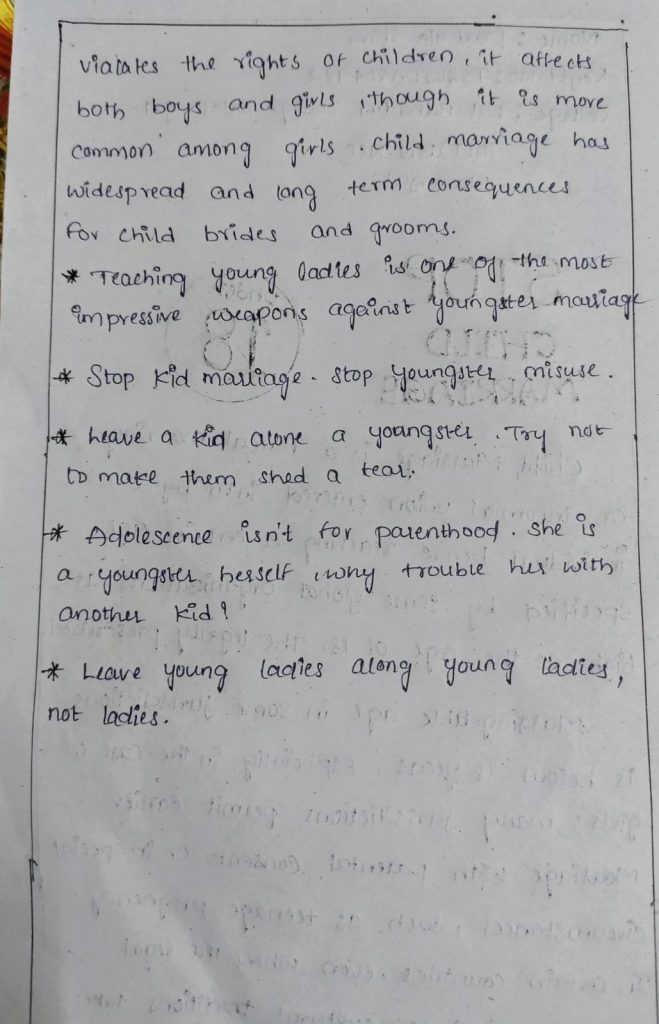 vialates the rights of children, it affects
both boys and girls, though it is more
common among girls. child marriage has
widespread and long term consequences
for child brides and grooms.
* Teaching young ladies is one of the most
impressive weapons against youngster marriage
* Stop kid marriage. stop youngster misuse.
* Leave a kid alone a youngster. Try not
to make them shed a tear.
* Adolescence isn't for parenthood. She is
a youngster herself, why trouble her with
another kid?
* Leave young ladies along young ladies,
not ladies.